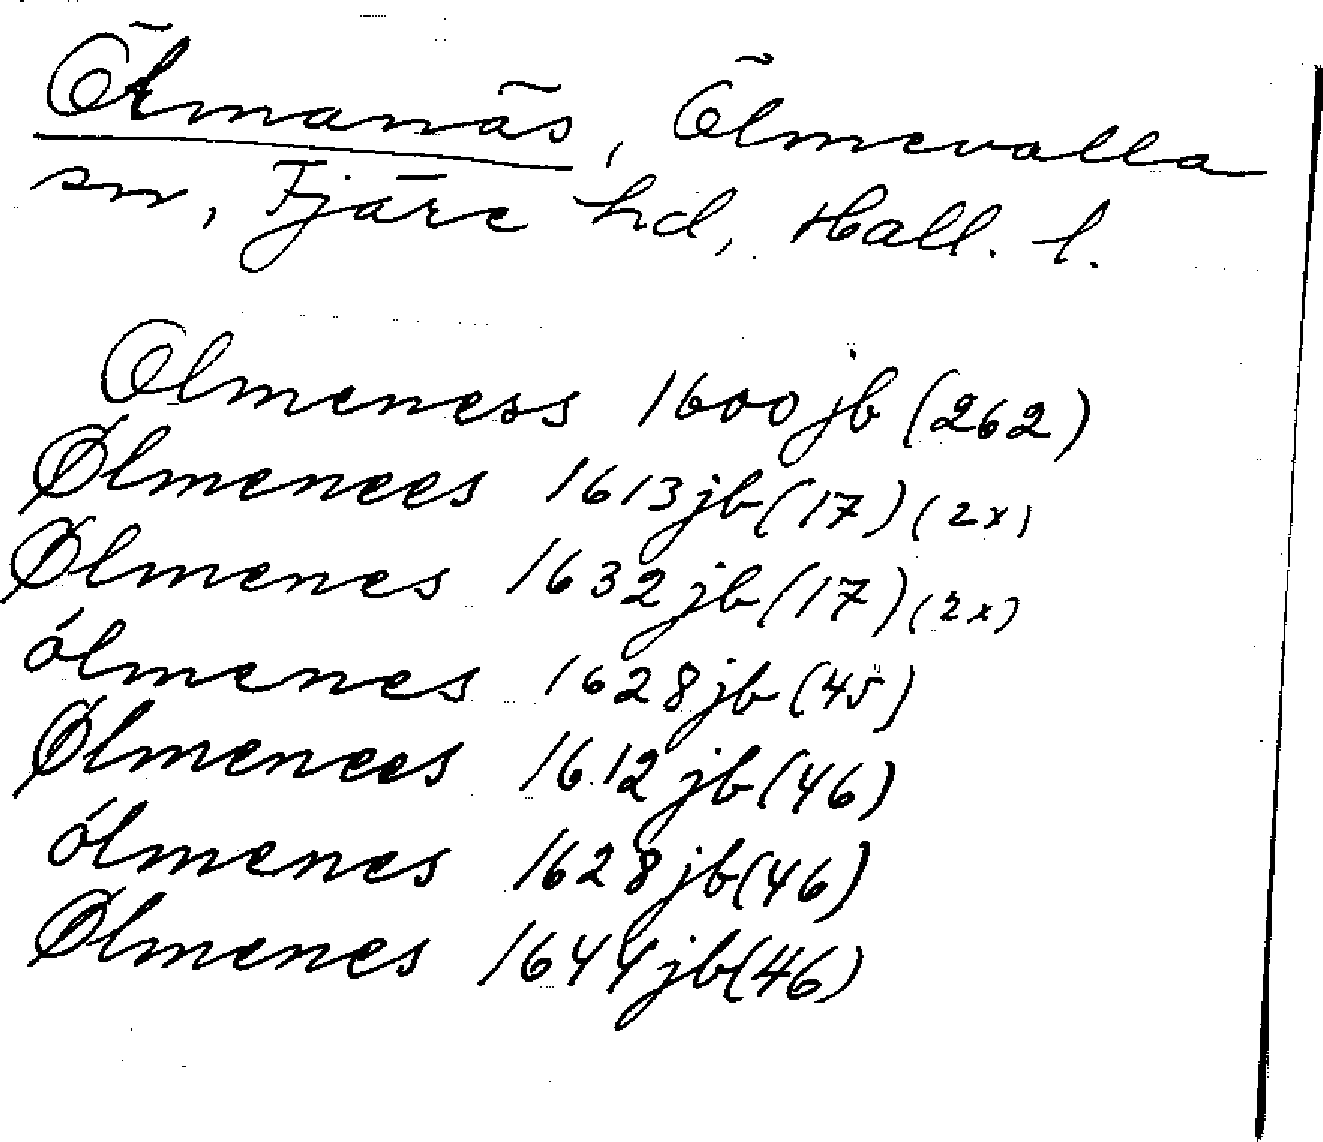 Ölmanäs, Ölmevalla
sn, Fjäre hd, Hall. l.
Olmeness 1600 jb (262)
Ølmenees 1613 jb (17) (2x)
Ølmenes 1632 jb (17) (2x)
ólmenes 1628 jb (45)
Ølmenees 1612 jb (46)
ólmenes 1628 jb (46)
Ølmenes 1644 jb (46)